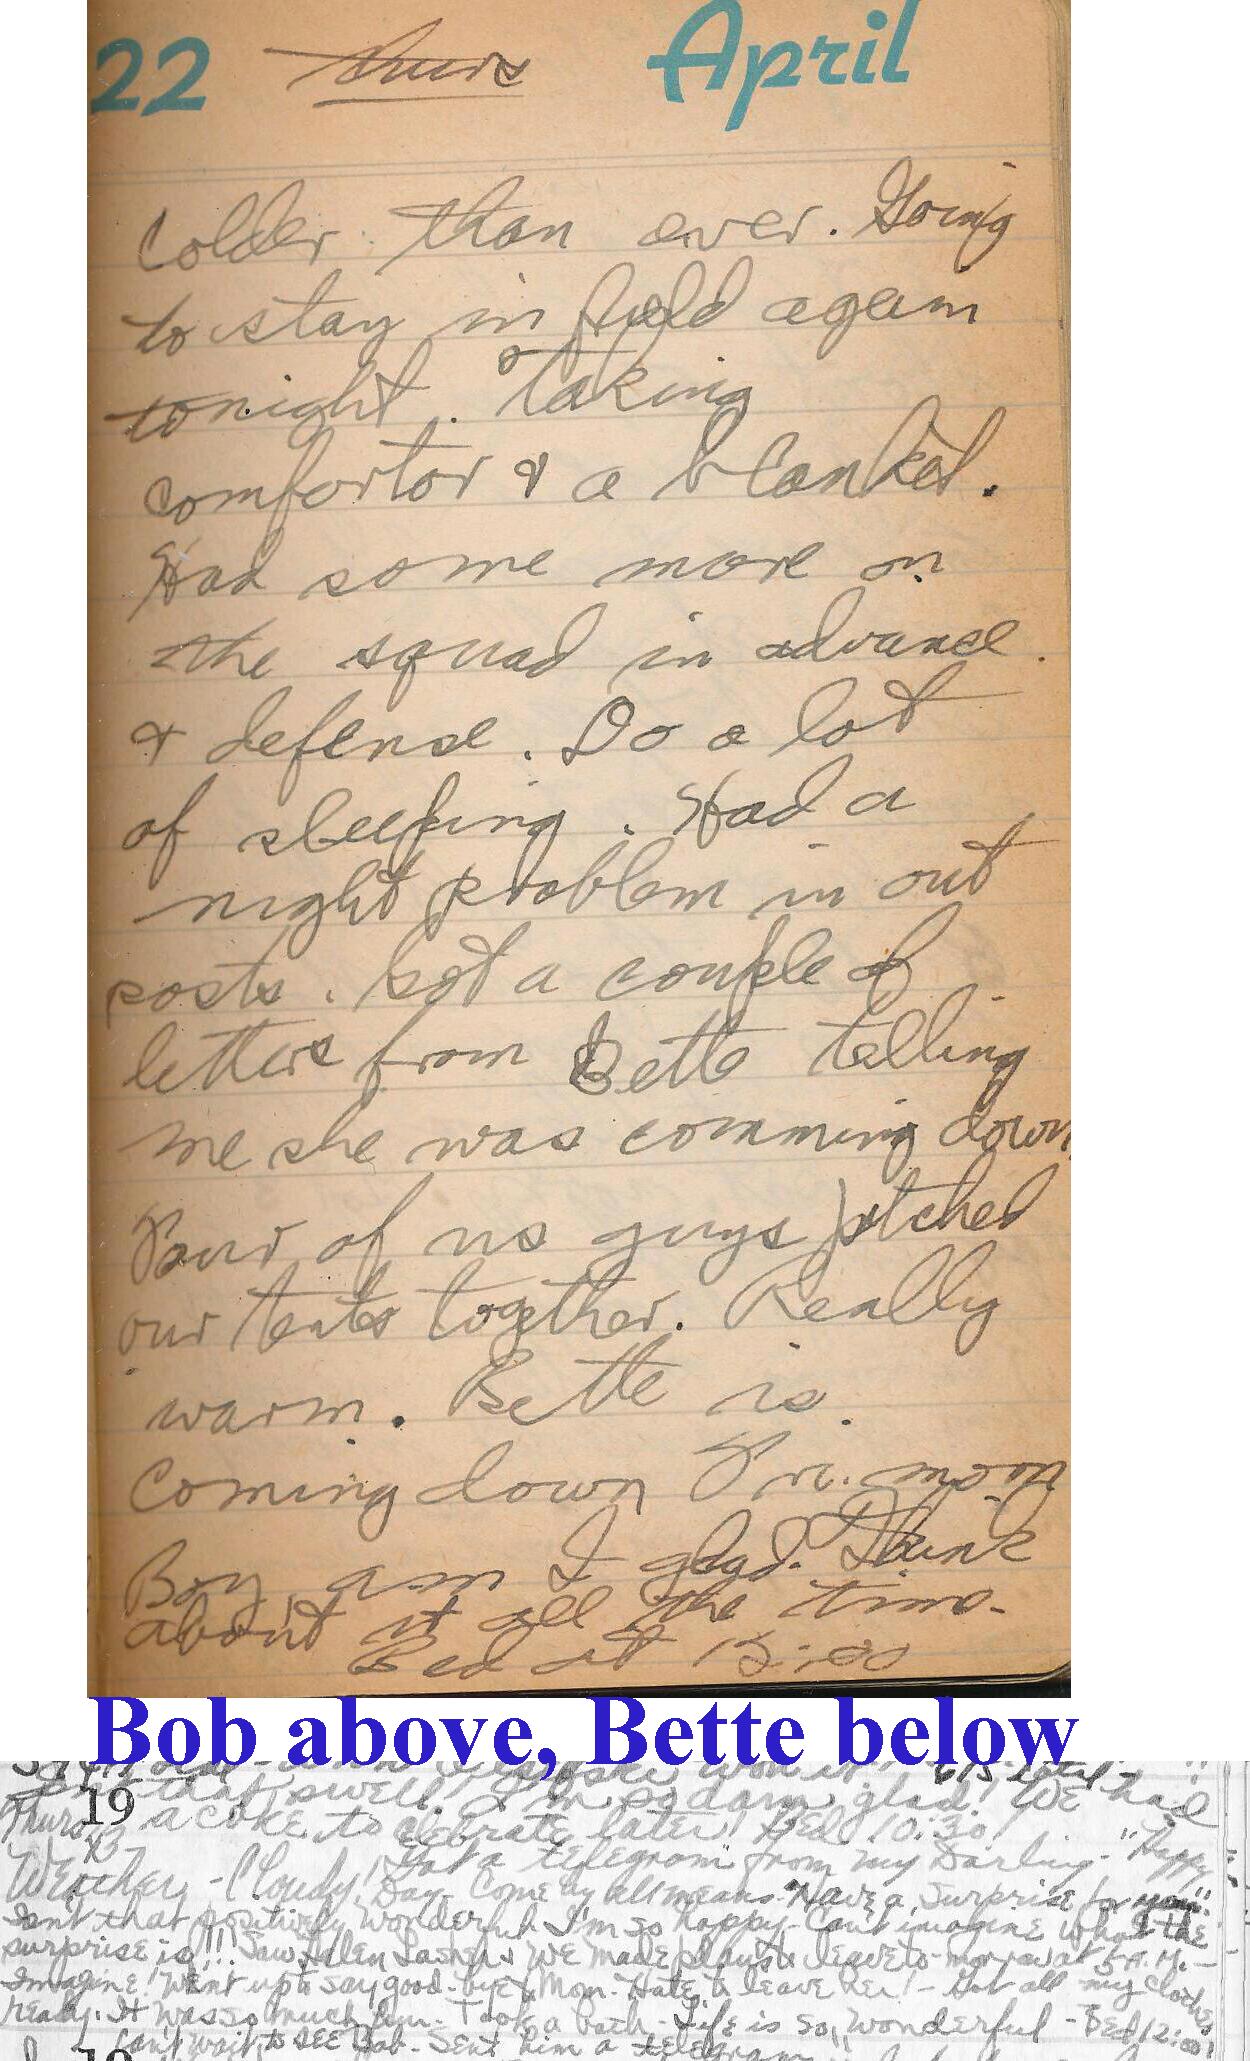 22 Thurs April
Colder than ever. Going
to stay in field again
tonight. Taking
comfortor & a blanket.
Had some more on
the squad in advance
& defense. Do a lot
of sleeping. Had a
night problem in out
posts. Got a couple of
letters from Bette telling
me she was comming down
Four of us guys pitched
our tents together. Really
warm. Bette is
coming down Fri. morn
Boy am I glad. Think
about it all the time.
Bed at 12:00
Bob above, Bette below
won it
19 that swell! I'm so darn glad! We had
Thurs a coke to clebrate later Bed 10:30!
43 Got a telegram from my Darling - "Happy
Weather - Cloudy! Day - Come by all means. Have a surprise for you"
Isn't that positively wonderful. I'm so happy - Can't imagine what the
surprise is!!! Saw Helen & we made plans to leave to-morrow at 5 P.M. -
Imagine! Went up to say good-bye to Mom. Hate to leave her! - Got all my clothes
ready. It was so much fun. Took a bath - Life is so wonderful - Bed 12:00!
19 Can't wait to see Bob - Sent him a telegram